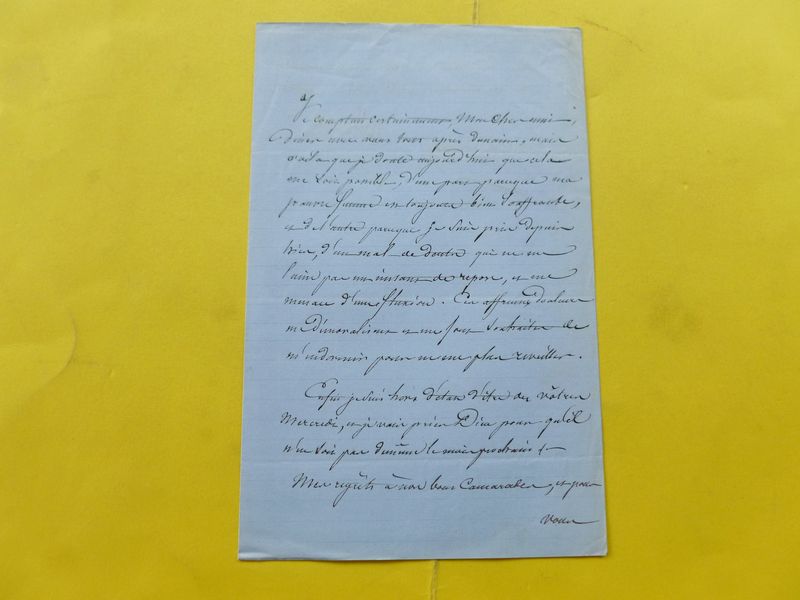 Je comptais certainement Mon cher ami,
Diner avec vous tous après demain, mais
voila que je doute aujourd'hui que cela
me soit possible, d'une part parceque ma
pauvre femme est toujours bien souffrante,
et de l'autre parceque je suis pris depuis
hier, d'un mal de dents qui ne me
laisse pas un instant de repos, et me
menace d'une fluxion. Ces affreuses douleurs
me démoralisent et me font souhaiter de
m'endormir pour ne me plus réveiller.
Enfin je suis hors d'état d'être des vôtres
Mercredi, et je vais prier Dieu pour qu'il
n'en soit pas de même le mois prochain.
Mes regrets à nos bons Camarades, et pour
vous